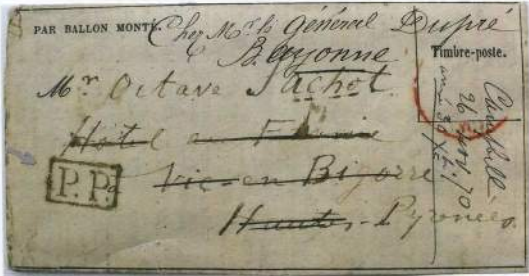 PAR BALLON MONTÉ.
Chez Mr. le Général Dupré
Bayonne
Timbre-poste.
Mr Octave Sachot
Hôtel
Vic-en Bigorre
Hautes-Pyrénées
P.P.
26 nov. 70